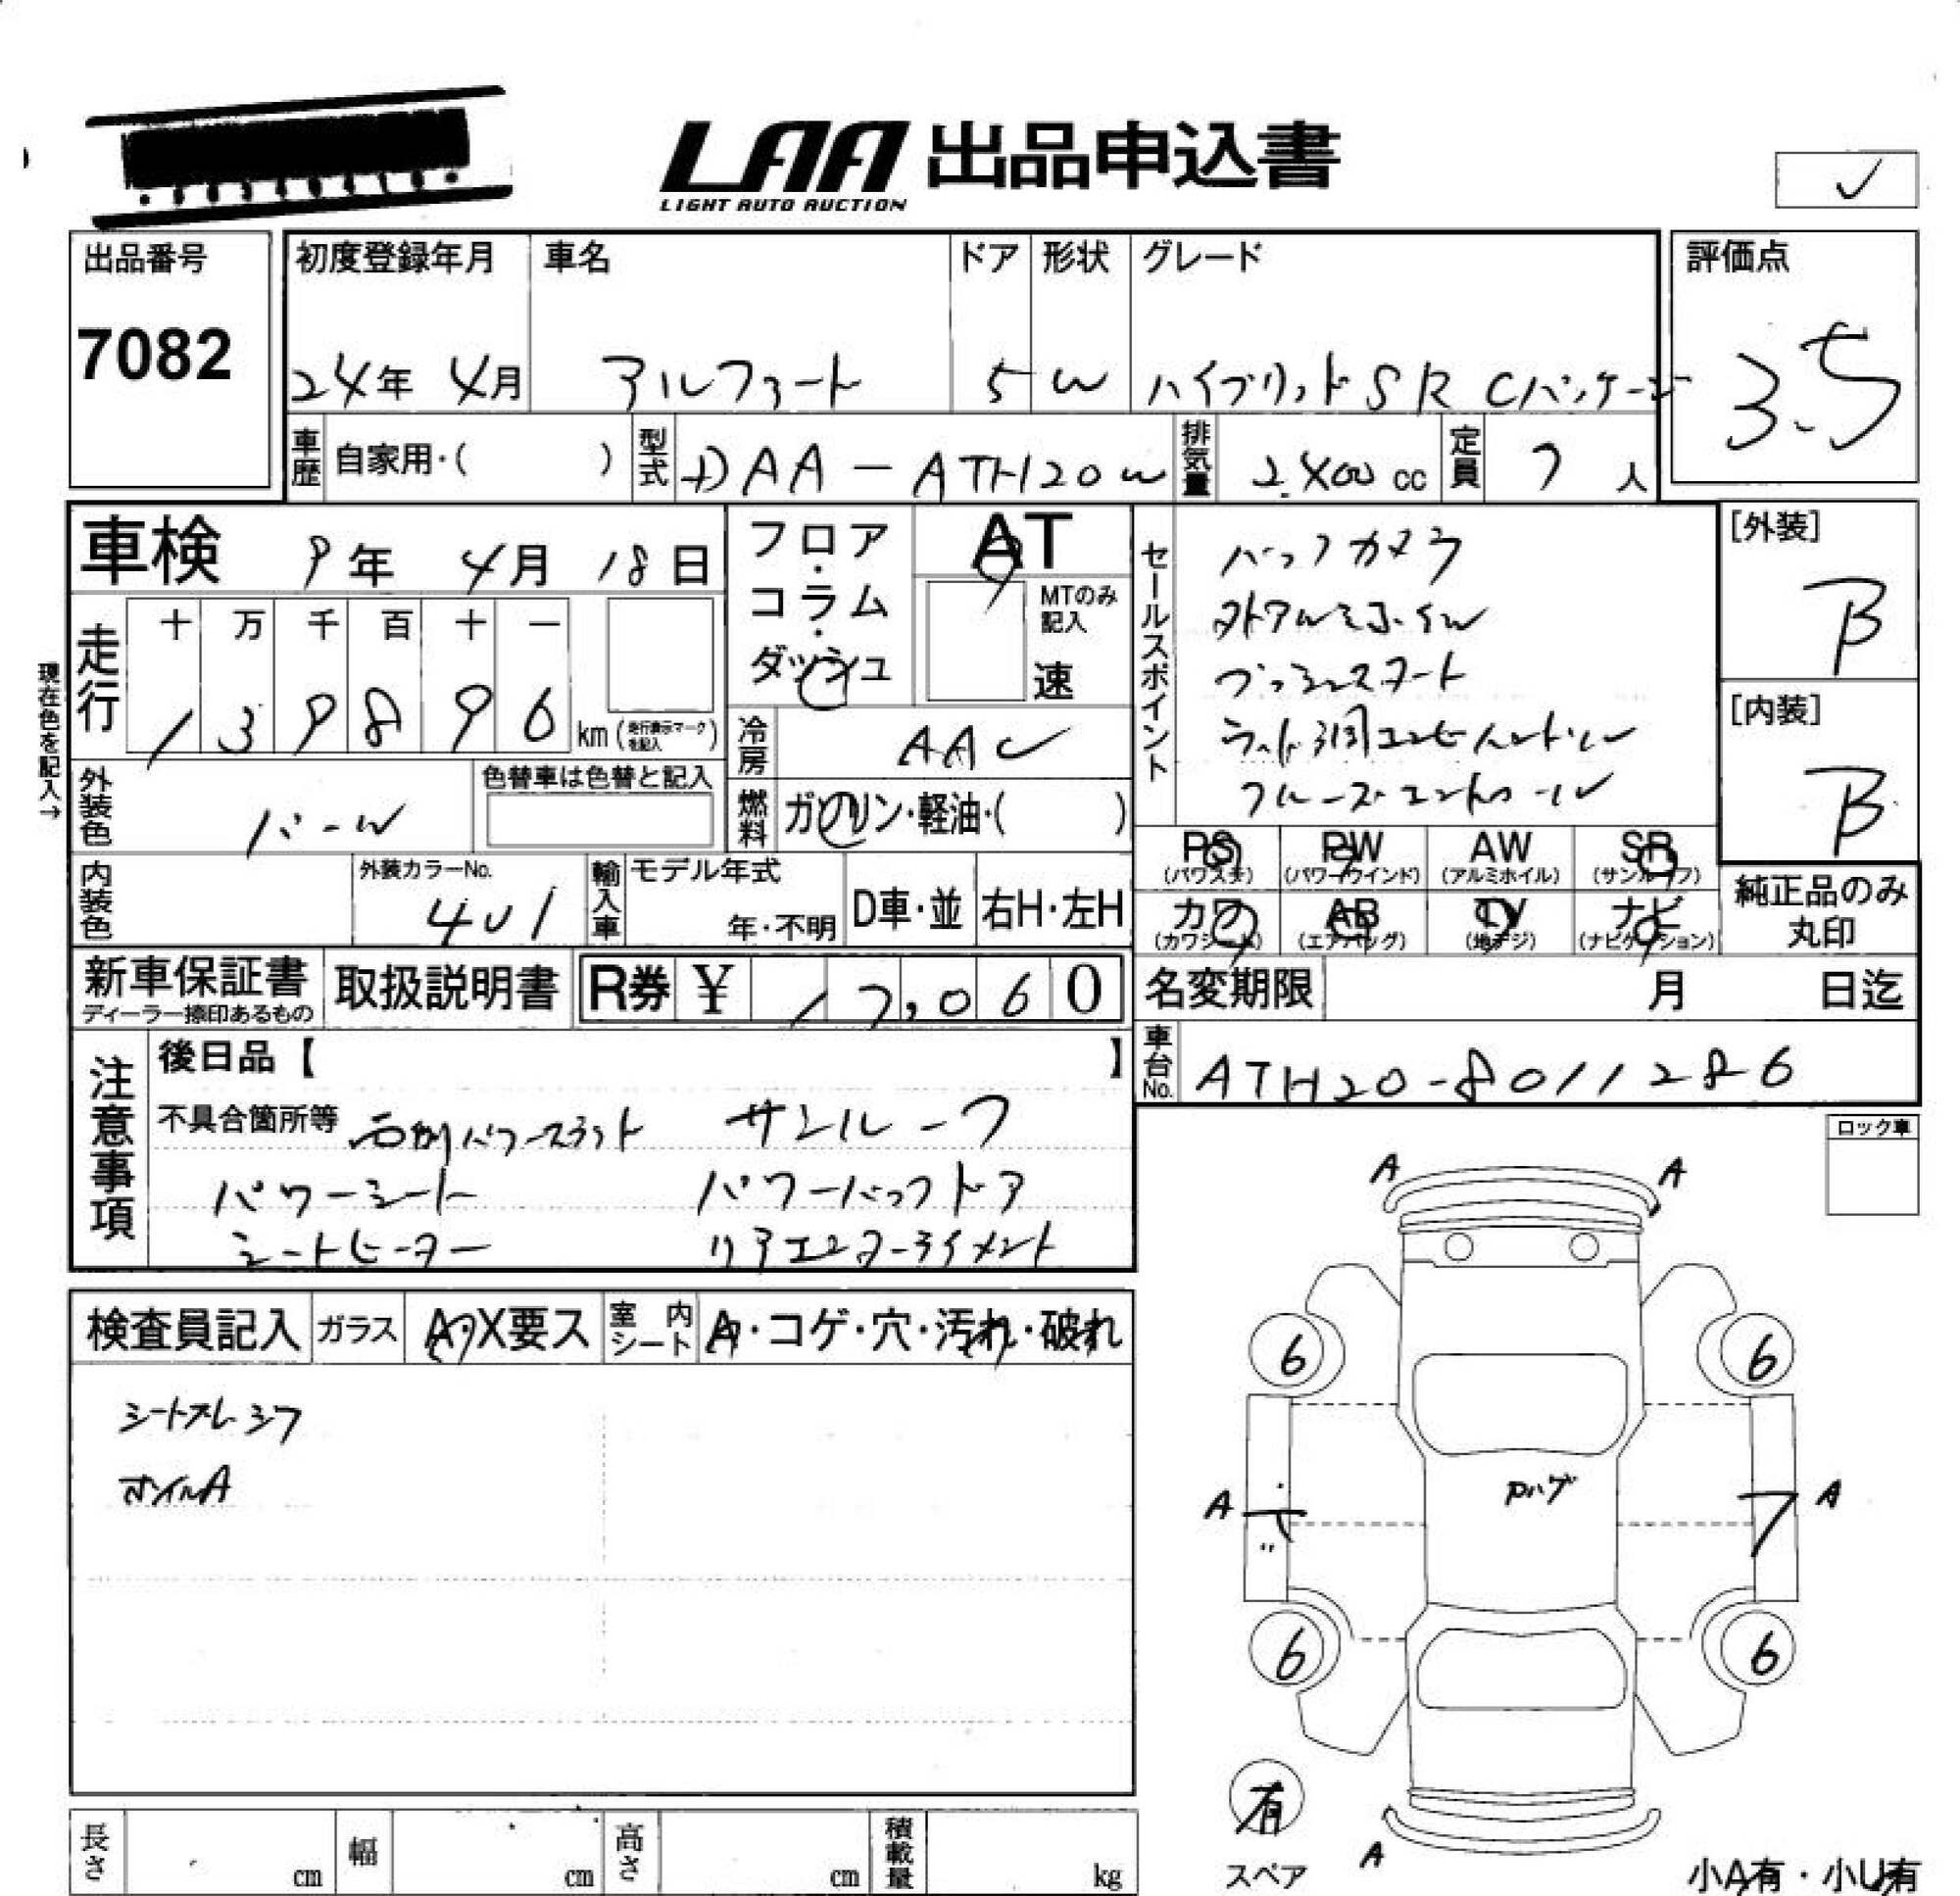 LAA 出品申込書
LIGHT AUTO AUCTION
出品番号
7082
初度登録年月
24年 4月
車名
アルファード
ドア
5
形状
W
グレード
ハイブリッド SR Cパッケージ
評価点
3.5
車歴 自家用・( )
型式 DAA-ATH20W
排気量 2400 cc
定員 7 人
車検 9年 4月 18日
フロア・コラム・ダッシュ
AT
MTのみ記入
速
現在色を記入→
走行 十 万 千 百 十 一
1 3 9 8 9 6 km (走行表示マークを記入)
冷房 AAC
燃料 ガソリン・軽油・( )
外装色 パール
色替車は色替と記入
内装色
外装カラーNo.
401
輸入車 モデル年式
年・不明
D車・並
右H・左H
セールスポイント
バックカメラ
外アルミホイル
プッシュスタート
クルーズコントロール
[外装]
B
[内装]
B
PS (パワステ)
PW (パワーウインド)
AW (アルミホイル)
SR (サンルーフ)
カワ (カワシート)
AB (エアバッグ)
TV (地デジ)
ナビ (ナビゲーション)
純正品のみ
丸印
新車保証書
ディーラー捺印あるもの
取扱説明書
R券 ¥ 17,060
名変期限 月 日迄
車台No. ATH20-8011286
注意事項
後日品【 】
不具合箇所等 右側パワースライド サンルーフ
パワーシート パワーバックドア
シートヒーター リアエンターテイメント
検査員記入
ガラス A・X要ス
室内シート A・コゲ・穴・汚れ・破れ
シートスレ シワ
ホイルA
ロック車
A A
6 6
A A
Pハゲ
6 6
有
スペア
A
小A有・小U有
長さ cm
幅 cm
高さ cm
積載量 kg